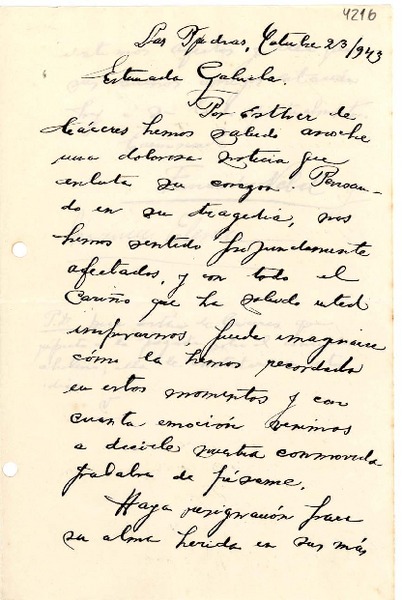 4216
Las Piedras, Octubre 23/943
Estimada Gabriela.
Por Esther de
Cáceres hemos sabido anoche
una dolorosa noticia que
enluta su corazón. Pensan-
do en su tragedia, nos
hemos sentido profundamente
afectados, y con todo el
cariño que ha sabido usted
inspirarnos, puede imaginarse
cómo la hemos recordado
en estos momentos y con
cuanta emoción venimos
a decirle nuestra conmovida
palabra de pésame.
Haya resignación para
su alma herida en sus más